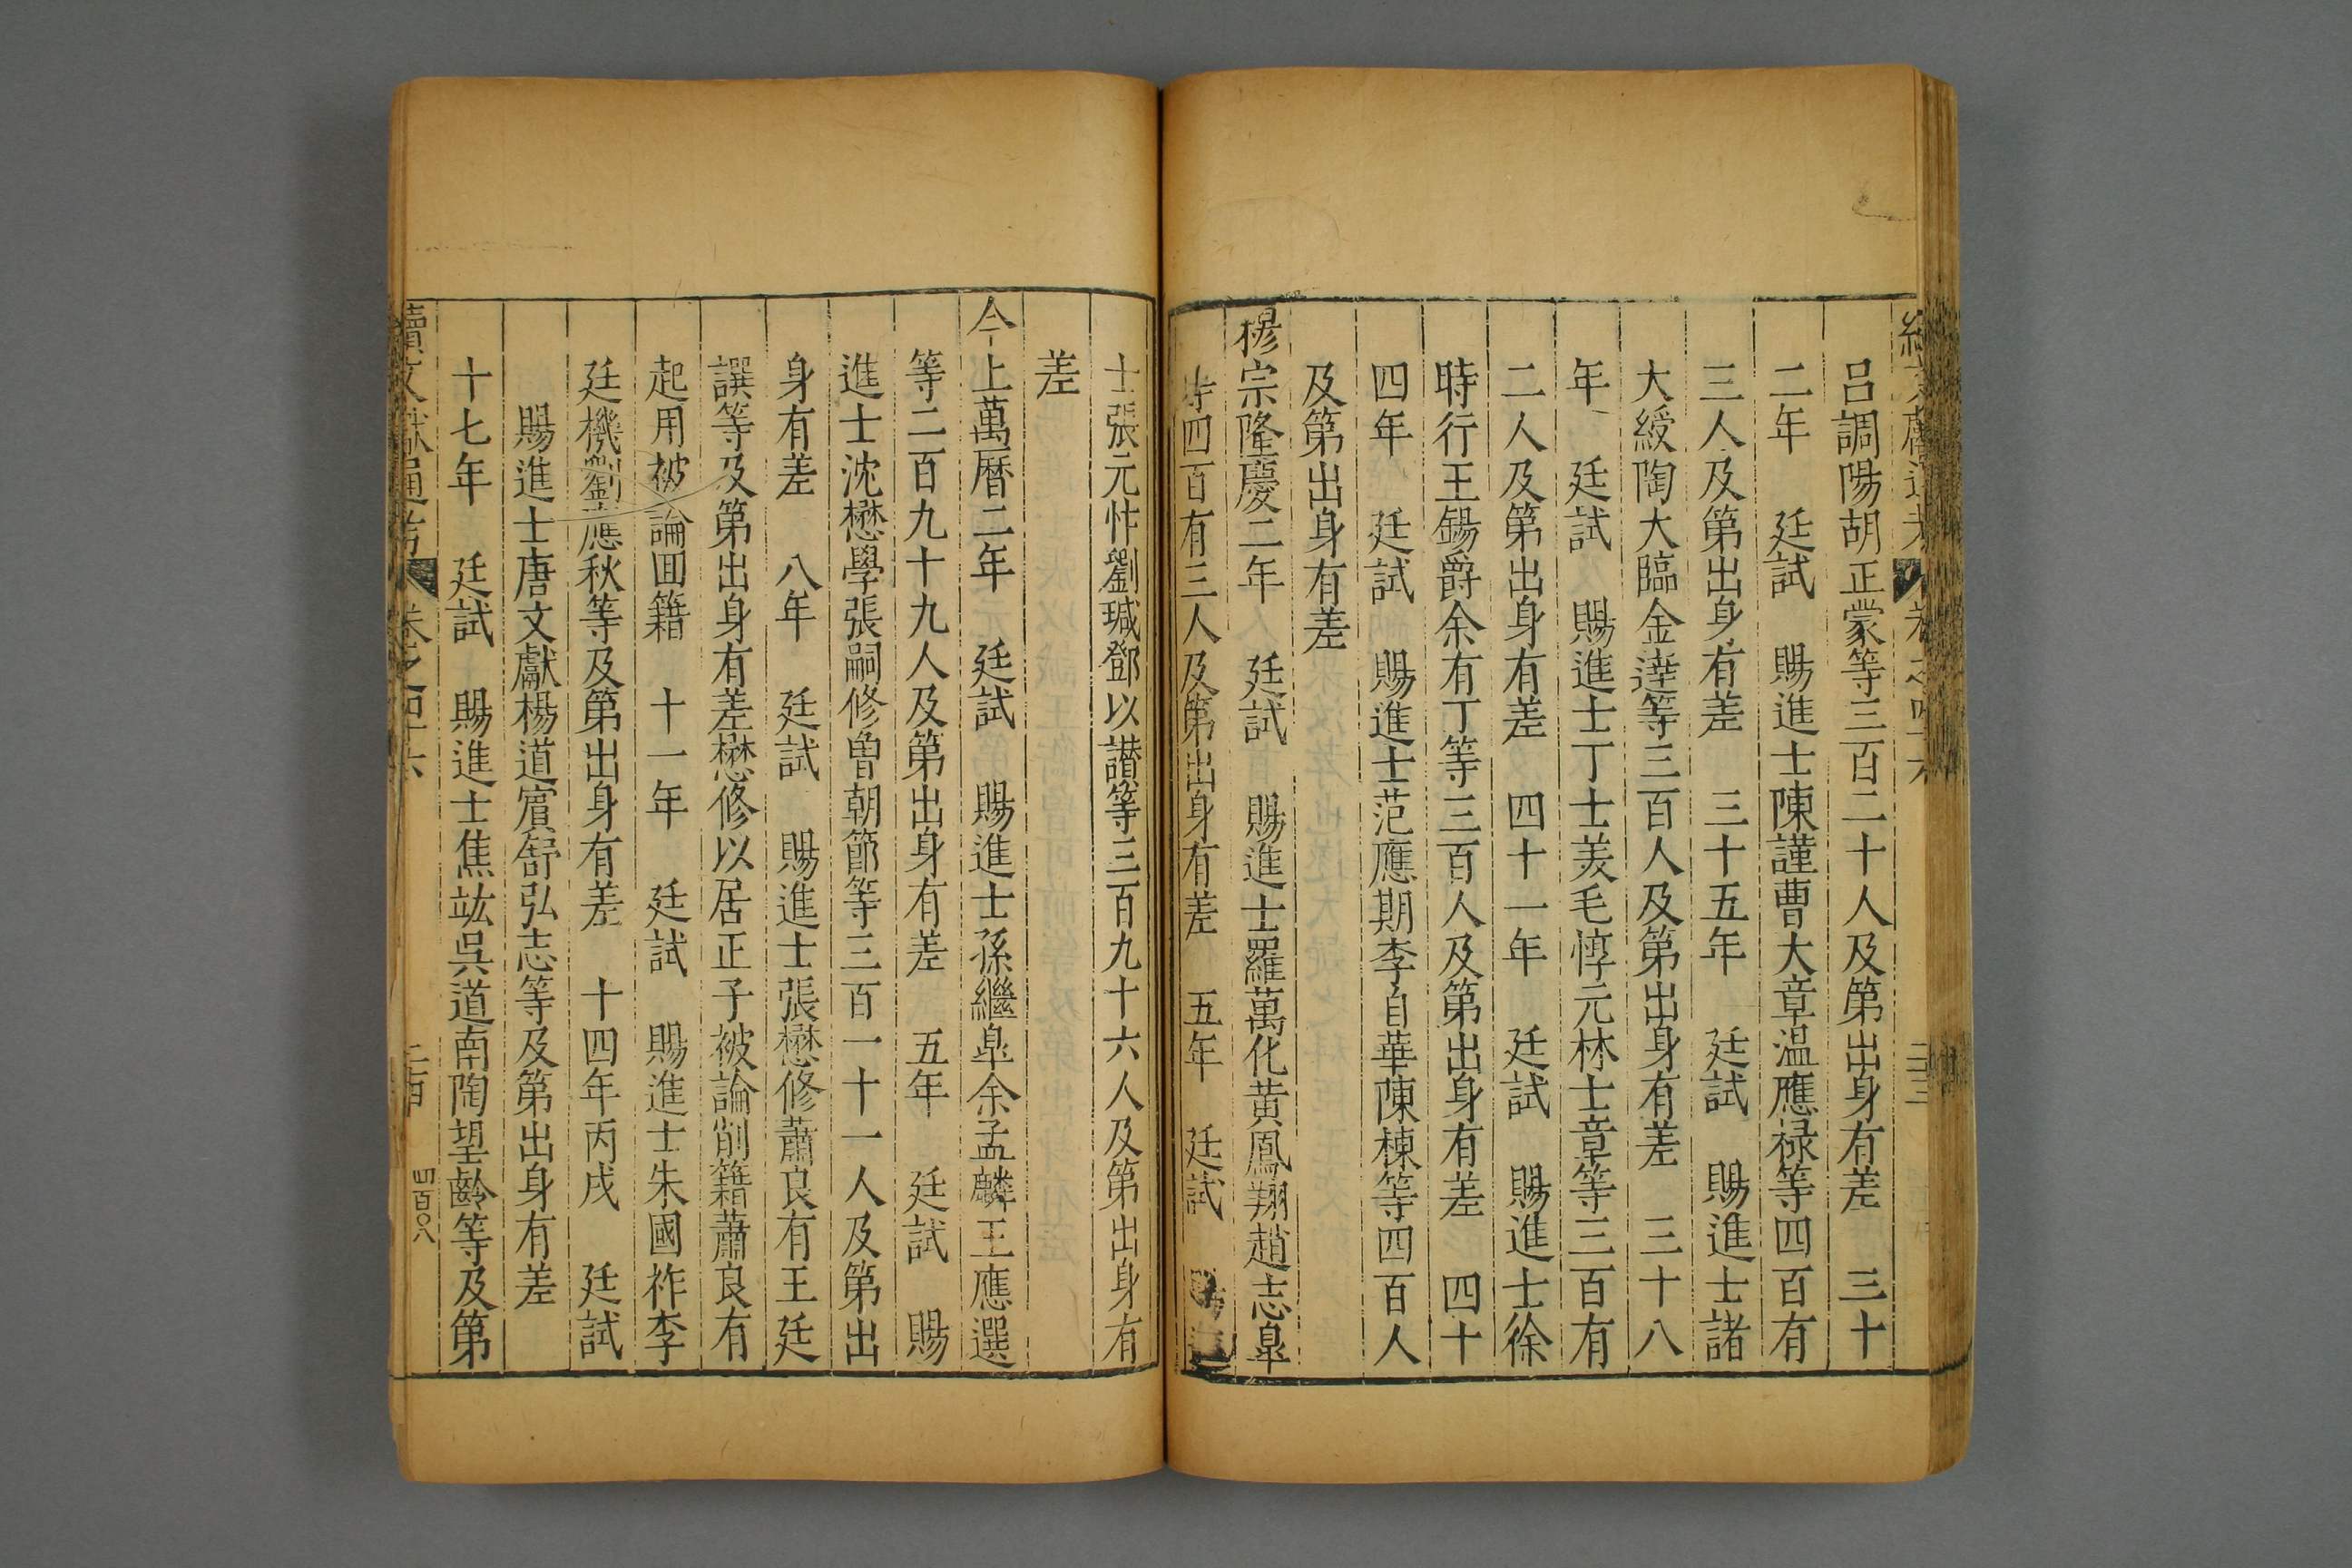 呂調陽胡正蒙等三百二十人及第出身有差 三十
二年 廷試 賜進士陳謹曹大章温應禄等四百有
三人及第出身有差 三十五年 廷試 賜進士諸
大綬陶大臨金達等三百人及第出身有差 三十八
年 廷試 賜進士丁士美毛惇元林士章等三百有
二人及第出身有差 四十一年 廷試 賜進士徐
時行王錫爵余有丁等三百人及第出身有差 四十
四年 廷試 賜進士范應期李自華陳棟等四百人
及第出身有差
穆宗隆慶二年 廷試 賜進士羅萬化黄鳳翔趙志皐
等四百有三人及第出身有差 五年 廷試 賜進
士張元忭劉瑊鄧以讃等三百九十六人及第出身有
差
今上萬曆二年 廷試 賜進士孫繼皐余孟麟王應選
等二百九十九人及第出身有差 五年 廷試 賜
進士沈懋學張嗣修曾朝節等三百一十一人及第出
身有差 八年 廷試 賜進士張懋修蕭良有王廷
譔等及第出身有差懋修以居正子被論削籍蕭良有
起用被論囬籍 十一年 廷試 賜進士朱國祚李
廷機劉應秋等及第出身有差 十四年丙戌 廷試
賜進士唐文獻楊道賓舒弘志等及第出身有差
十七年 廷試 賜進士焦竑吳道南陶望齡等及第
續文獻通考 卷之四十六 四百〇八